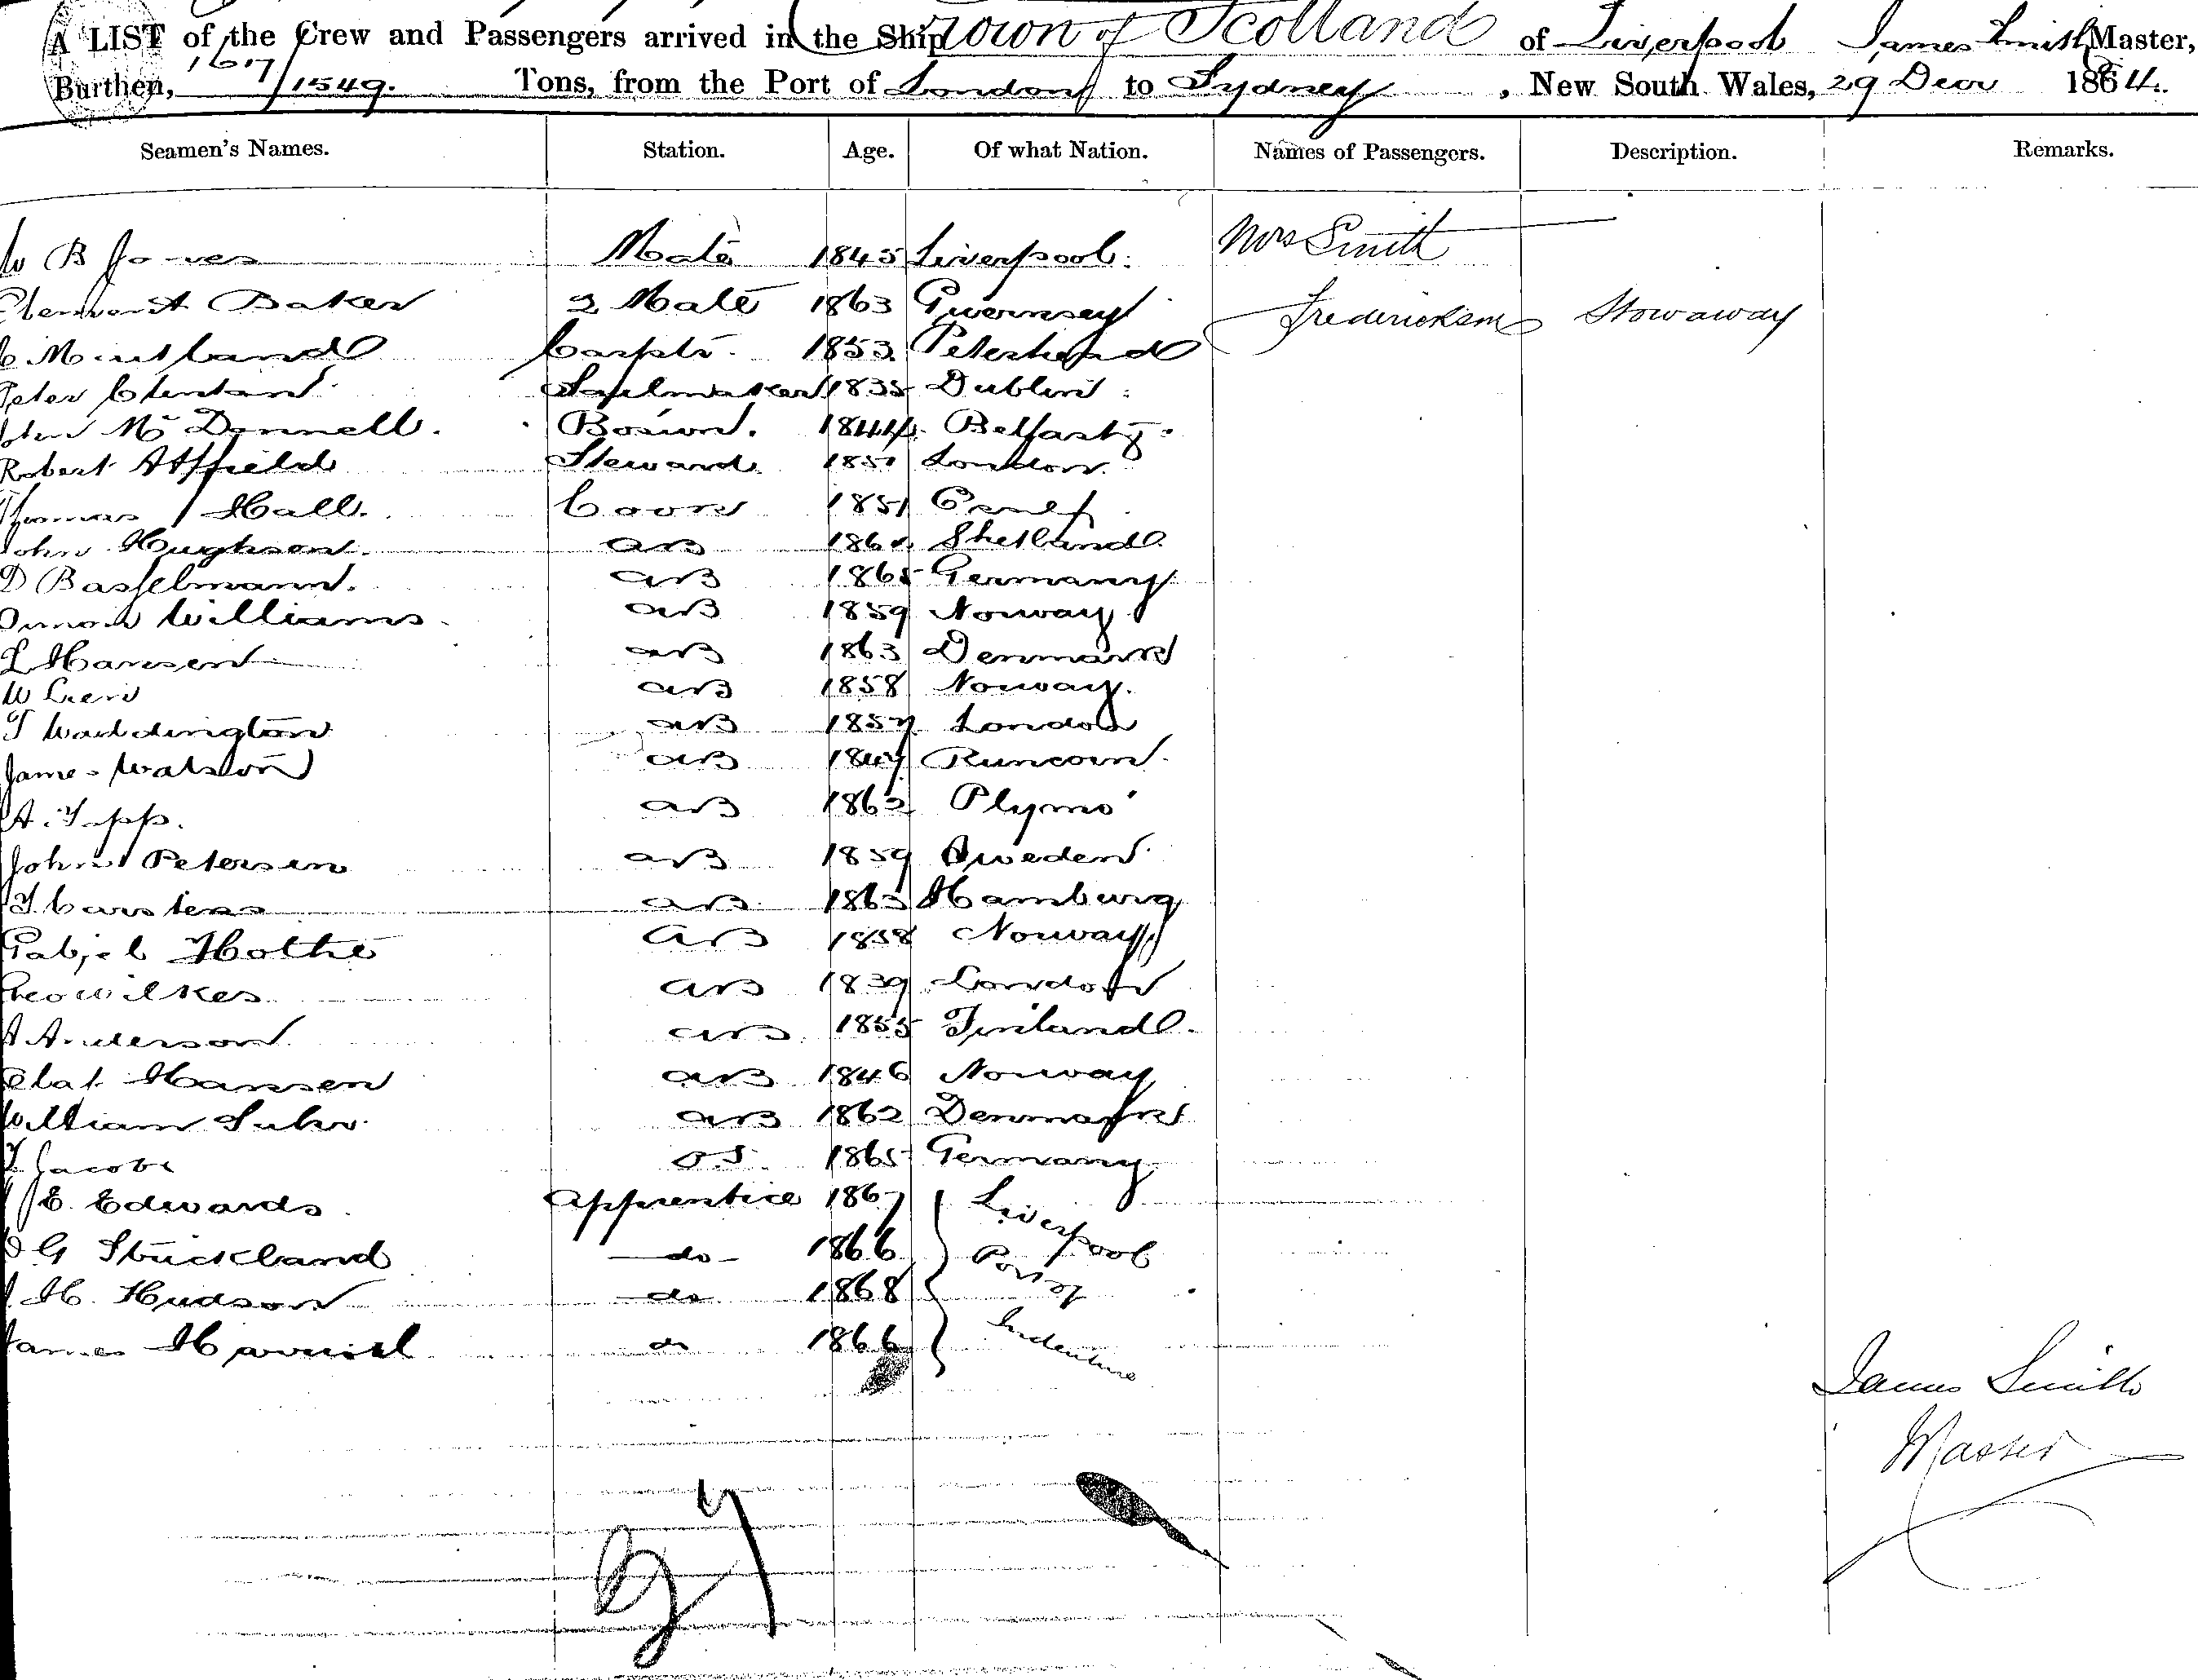 A LIST of the Crew and Passengers arrived in the Ship Crown of Scotland of Liverpool James Smith Master,
Burthen, 1617/1549. Tons, from the Port of London to Sydney, New South Wales, 29 Decr 1884.
Seamen's Names. Station. Age. Of what Nation. Names of Passengers. Description. Remarks.
W B Jones Mate 1845 Liverpool. Mrs Smith
Clement Baker 2 Mate 1863 Guernsey Frederickson Stowaway
Maitland Carptr. 1853 Peterhead
Peter Clinton Sailmaker 1835 Dublin
John McDonnell. Bosun. 1844 Belfast
Robert Attfield Steward 1851 London
Thomas Hall. Cook 1851
John Hughson. AB Shetland
D Basselmann. AB 1865 Germany
Williams AB 1859 Norway
L Hansen AB 1863 Denmark
W Lien AB 1858 Norway.
T Waddington AB 1857 London
James Watson AB Runcorn.
A. Tapp. AB 1862 Plymo'
John Petersen AB 1859 Sweden
T Carstens AB 1863 Hamburg
Gabriel Hothe AB 1858 Norway
Geo Wilkes AB 1839 London
A Anderson AB 1855 Finland.
Olaf Hansen AB 1846 Norway
William Suhr. AB 1862 Denmark
Jacobs O.S. 1865 Germany
E. Edwards Apprentice 1867 Liverpool
G Strickland do 1866 Port of
H. Hudson do 1868 Indenture
James Harrisl do 1866
James Smith
Master
27